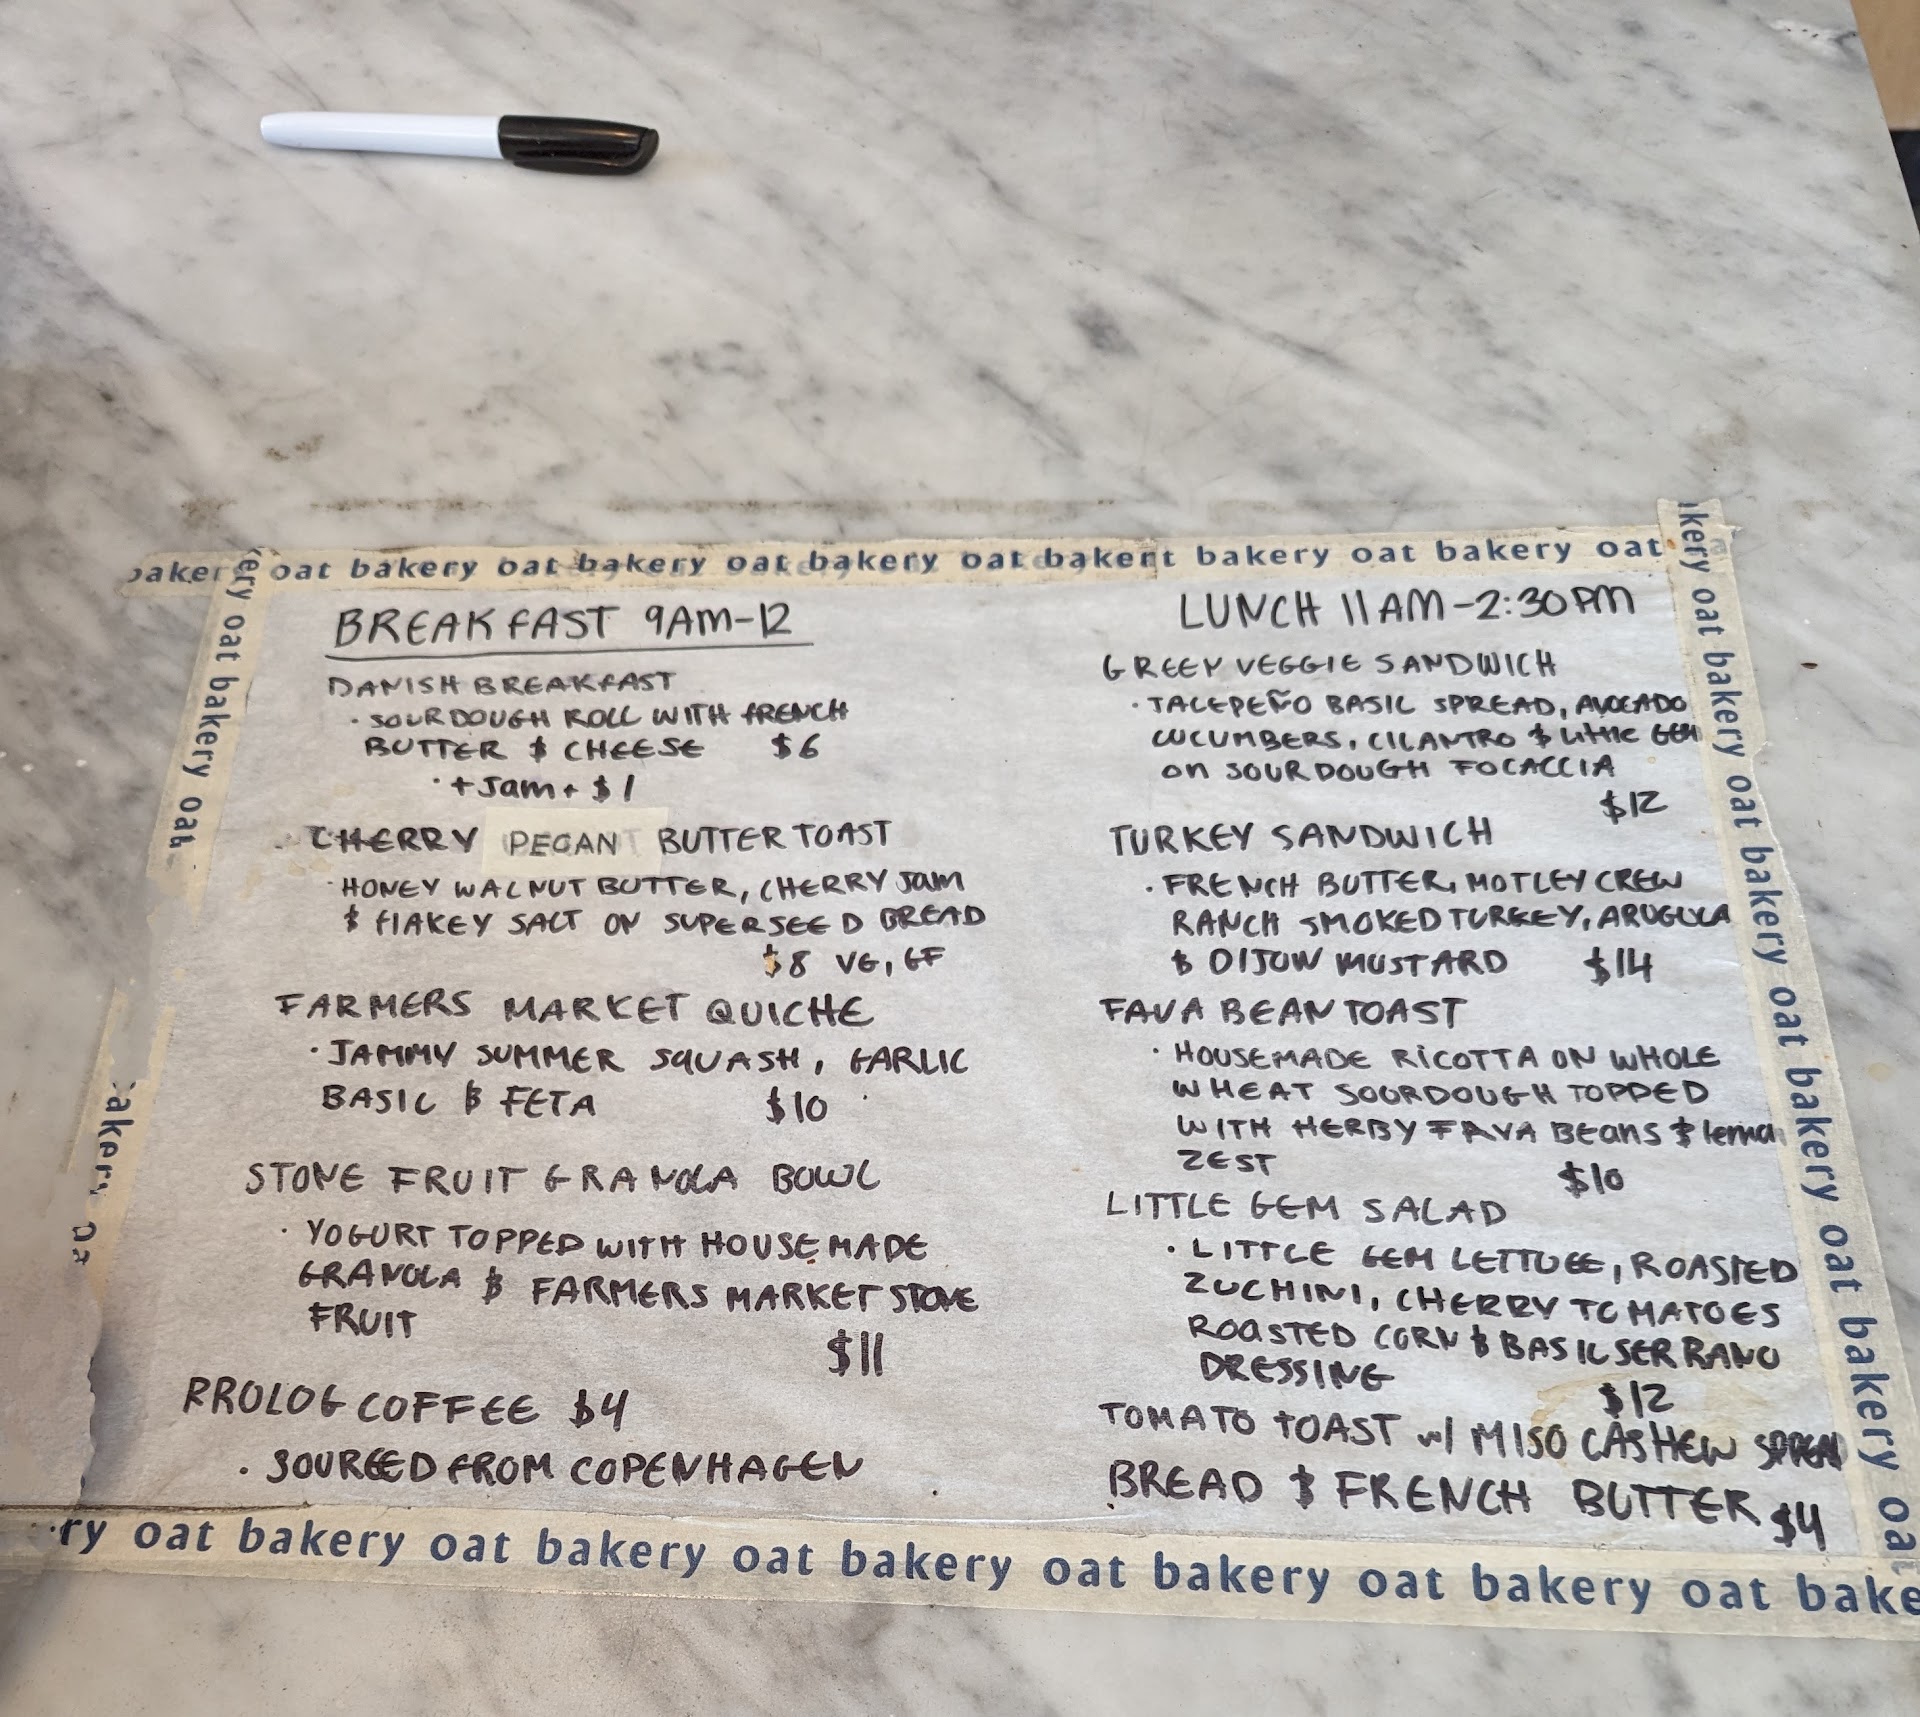 oat bakery oat bakery oat bakery oat bakery oat
BREAKFAST 9AM-12
DANISH BREAKFAST
· SOURDOUGH ROLL WITH FRENCH
BUTTER & CHEESE $6
· + Jam + $1
CHERRY PECAN BUTTER TOAST
· HONEY WALNUT BUTTER, CHERRY JAM
& FLAKEY SALT ON SUPERSEED BREAD
$8 VG, GF
FARMERS MARKET QUICHE
· JAMMY SUMMER SQUASH, GARLIC
BASIL & FETA $10
STONE FRUIT GRANOLA BOWL
· YOGURT TOPPED WITH HOUSEMADE
GRANOLA & FARMERS MARKET STONE
FRUIT
$11
PROLOG COFFEE $4
· SOURCED FROM COPENHAGEN
LUNCH 11AM-2:30PM
GREEN VEGGIE SANDWICH
· JALEPEÑO BASIL SPREAD, AVOCADO
CUCUMBERS, CILANTRO & Little GEM
on SOURDOUGH FOCACCIA
$12
TURKEY SANDWICH
· FRENCH BUTTER, MOTLEY CREW
RANCH SMOKED TURKEY, ARUGULA
& DIJON MUSTARD $14
FAVA BEAN TOAST
· HOUSEMADE RICOTTA ON WHOLE
WHEAT SOURDOUGH TOPPED
WITH HERBY FAVA BEANS & lemon
ZEST
$10
LITTLE GEM SALAD
· LITTLE GEM LETTUCE, ROASTED
ZUCHINI, CHERRY TOMATOES
ROASTED CORN & BASIL SERRANO
DRESSING
$12
TOMATO TOAST w/ MISO CASHEW
BREAD & FRENCH BUTTER $4
oat bakery oat bakery oat bakery oat bakery oat
oat bakery oat
oat bakery oat bakery oat bakery oat bakery oat